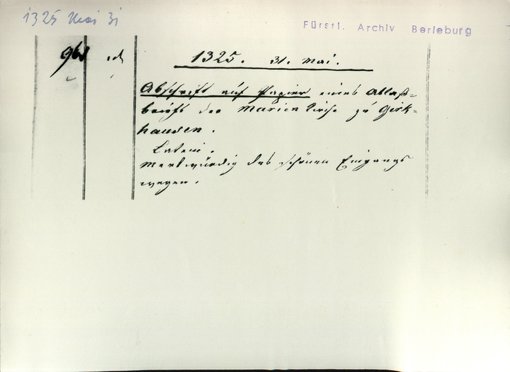 1325 Mai 31
Fürstl. Archiv Berleburg
1325. 31. Mai.
Abschrift auf Papier eines Ablaß-
briefs der Marienkirche zu Girk-
hausen.
Latein.
Merkwürdig des schönen Eingangs
wegen.